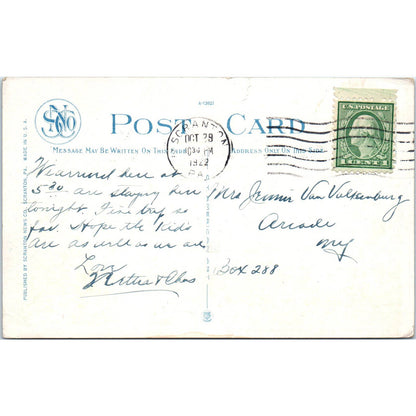 A-73621
SNCO
POST CARD
MESSAGE MAY BE WRITTEN ON THIS SIDE
ADDRESS ONLY ON THIS SIDE
SCRANTON
OCT 29
1922
PA.
U.S. POSTAGE
1 CENT 1
We arrived here at
5:30 are staying here
tonight. Fine trip so
far. Hope the kids
are as well as we are
Love
& Chas
Mrs Jennie Van Valkenburg
Arcade
NY
Box 288
PUBLISHED BY SCRANTON NEWS CO. SCRANTON, PA. MADE IN U.S.A.